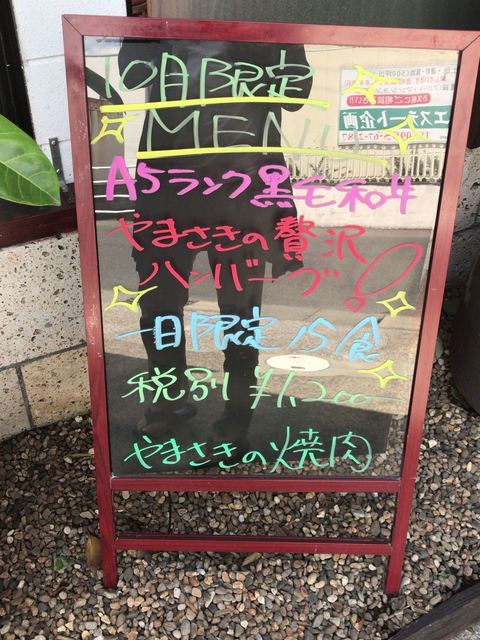 10月限定
MENU
A5ランク黒毛和牛
やまさきの贅沢
ハンバーグ!
一日限定15食
税別¥1,200-
やまさきの焼肉
エステート企画